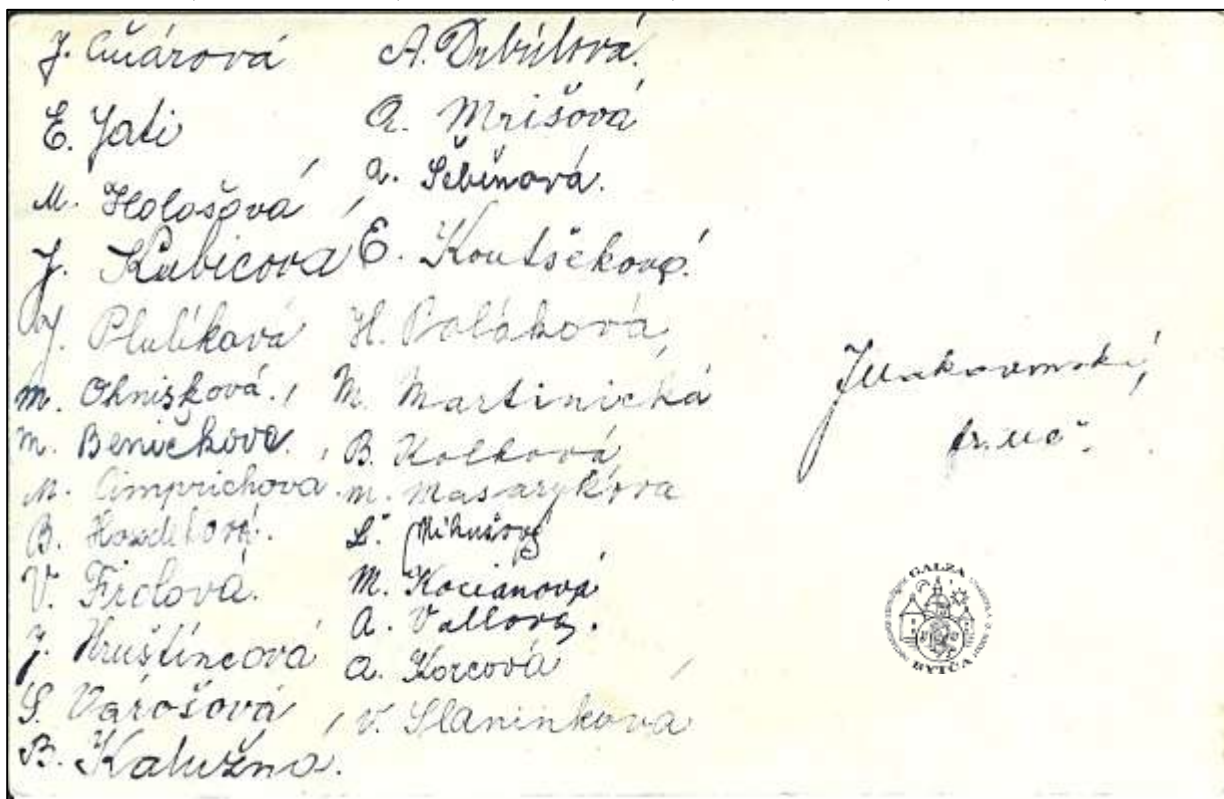 J. Čuárová
E. Jati
M. Hološová,
J. Kubicová
J. Plulíková
M. Ohnisková,
M. Beničková,
M. Cimprichova
B.
V. Firlová.
J. Hruštincová
S. Várošová,
B. Kalužná.
A. Drbúlová.
A. Mrišová
A. Šebíňová.
E. Koutšeková.
H. Poláková,
M. Martinická
B. Kolková
M. Masaryková
Ľ. Mikušová
M. Kociánová
A. Vallová.
A. Korcová
V. Slaninková
GALZA
BYTČA